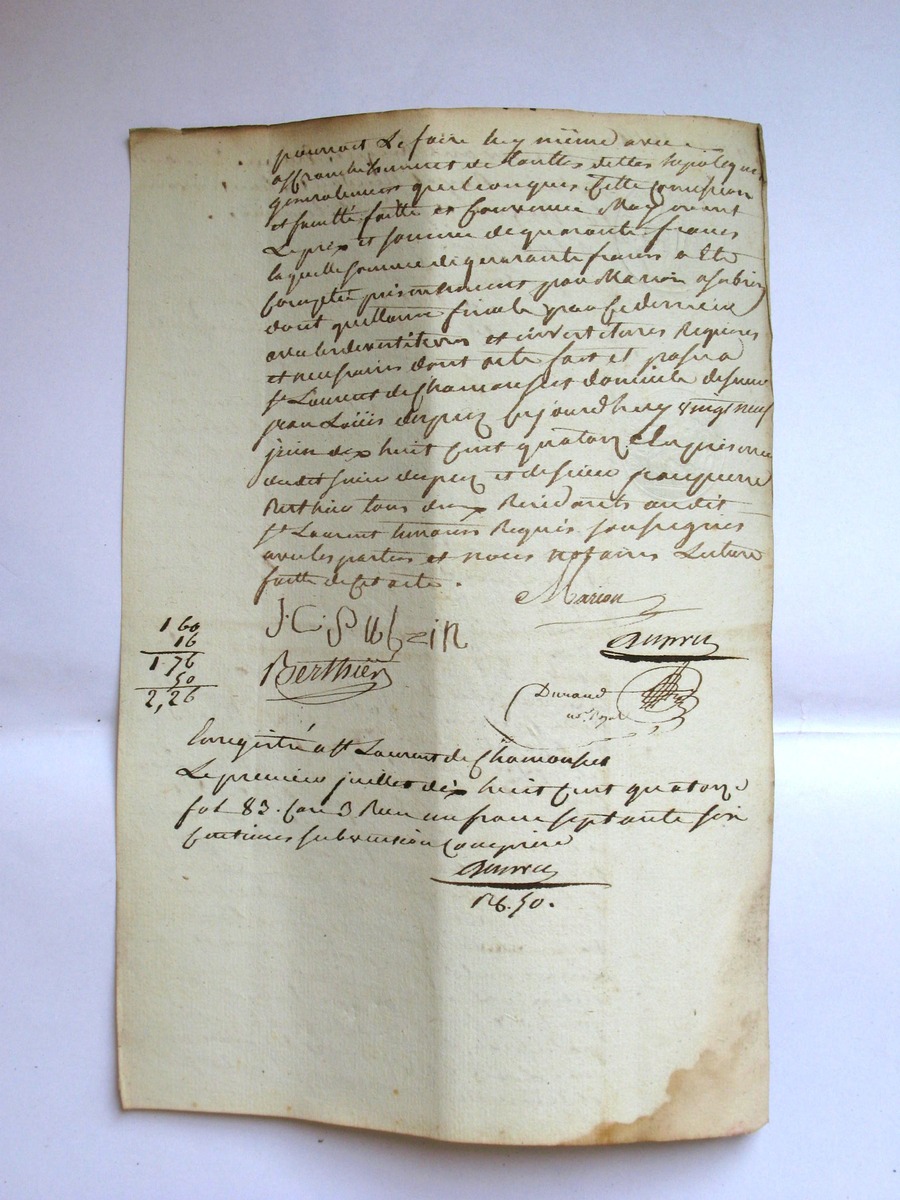 pourroit Le faire luy même avec
affranchissement de touttes dettes hipoteques
generalement quelconques Cette Concession
et faculté faitte et Convenue Moyennant
Le prix et somme de quarante francs
laquelle somme de quarante francs a Eté
Comptée présentement par Marion a Subzin
dont quittance finale par Ce dernier
avec les devetitures et invetitures Requises
et necessaires dont acte fait et passé a
St Laurent de Chamousset domicile de sieur
jean Loüis dupuy Cejourdhuy vingt neuf
juin dix huit Cent quatorze En presence
dudit sieur dupuy et de sieur pierre
Berthier tous deux Residants audit
St Laurent temoins Requis soussignés
avec les parties et nous notaire Lecture
faitte de Cet acte .
Marion
J. C. Subzin
dupuy
Berthier
Durand
no.re Royal
1 60
16
1.76
50
2,26
Enregistré a St Laurent de Chamousset
Le premier juillet dix huit Cent quatorze
fol 83. Case 3 Reçu un franc septante six
Centimes subvention Comprise
dupuy
R6. 50.